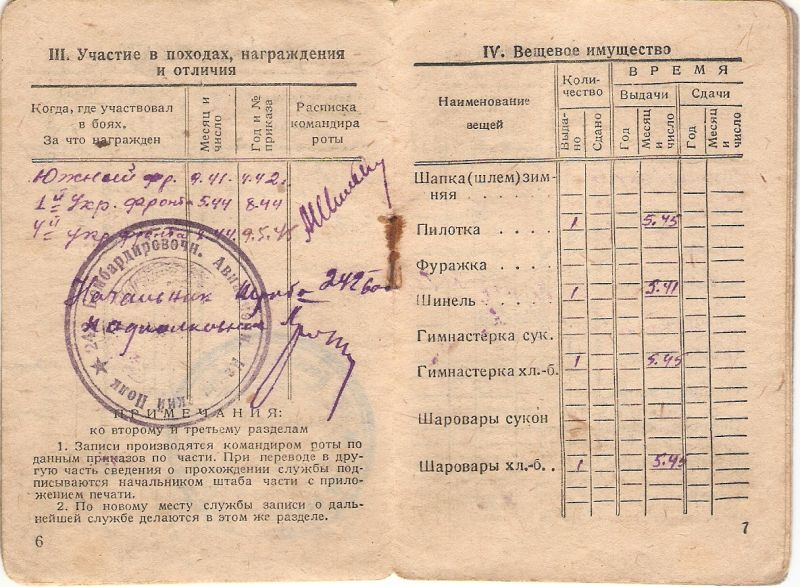 III. Участие в походах, награждения
и отличия
Когда, где участвовал
в боях.
За что награжден
Месяц и
число
Год и №
приказа
Расписка
командира
роты
Южный фр. 9.41. 4.42.
1й Укр. фронта 5.44 8.44
4й Укр. фронта 8.44 9.5.45
Начальник штаба 242 ба
подполковник
242 Бомбардировочн. Авиационный Полк
ПРИМЕЧАНИЯ:
ко второму и третьему разделам
1. Записи производятся командиром роты по
данным приказов по части. При переводе в дру-
гую часть сведения о прохождении службы под-
писываются начальником штаба части с прило-
жением печати.
2. По новому месту службы записи о даль-
нейшей службе делаются в этом же разделе.
6
IV. Вещевое имущество
Наименование
вещей
Коли-
чество
ВРЕМЯ
Выдачи
Сдачи
Выда-
но
Сдано
Год
Месяц
и
число
Год
Месяц
и
число
Шапка (шлем) зим-
няя . . . . .
Пилотка . . . . 1 5.45
Фуражка . . . .
Шинель . . . . 1 5.41
Гимнастерка сук.
Гимнастерка хл.-б. 1 5.45
Шаровары сукон
Шаровары хл.-б. . 1 5.45
7